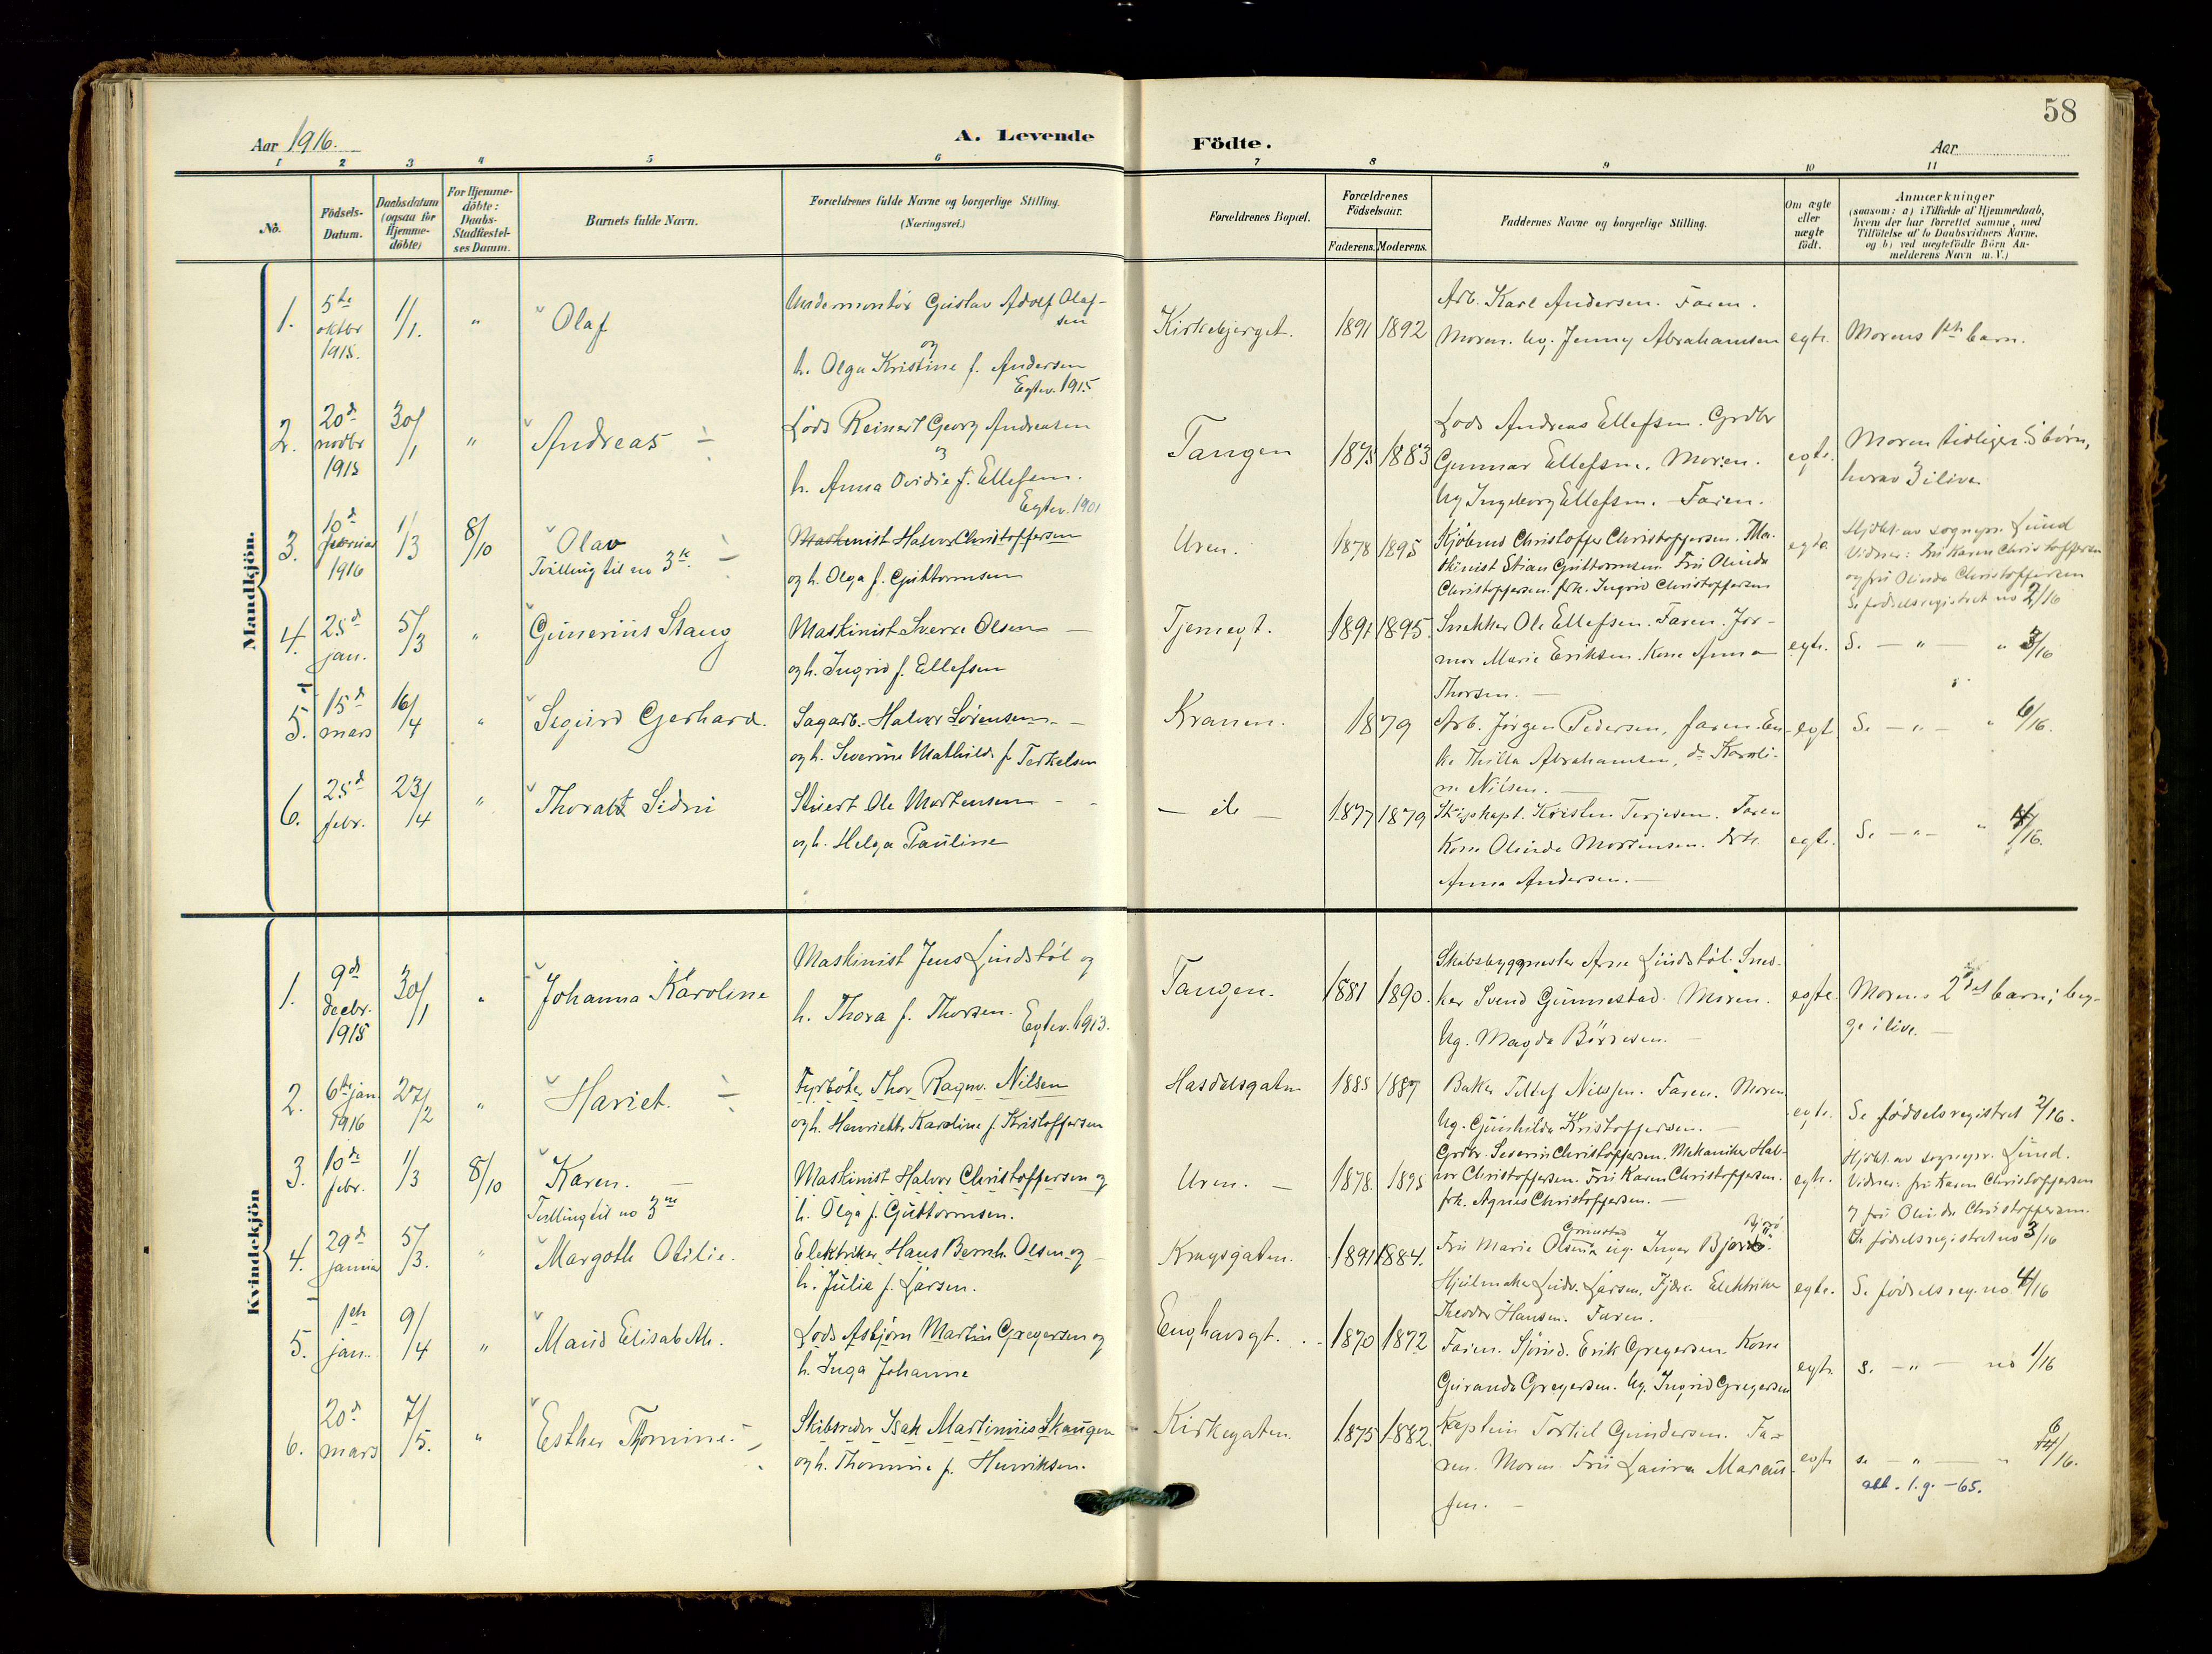 58
Aar 1916.
A. Levende
Födte.
Aar
1 2 3 4 5 6 7 8 9 10 11
No.
Födsels-
Datum.
Daabsdatum
(ogsaa for
Hjemme-
döbte)
For Hjemme-
döbte:
Daabs-
Stadfestel-
ses Datum.
Barnets fulde Navn.
Forældrenes fulde Navne og borgerlige Stilling.
(Næringsvei.)
Forældrenes Bopæl.
Forældrenes
Födselsaar.
Faderens. Moderens.
Faddernes Navne og borgerlige Stilling.
Om ægte
eller
uægte
födt.
Anmærkninger
(saasom: a) i Tilfælde af Hjemmedaab,
hvem der har forrettet samme, med
Tilföielse af to Daabsvidners Navne.
og b) ved uægtefödte Börn An-
melderens Navn m.V.)
Mandkjön.
1.
5te
oktbr
1915.
1/1.
"
Olaf
Gustav Adolf Olaf-
sen
og
h. Olga Kristine f. Andersen
Egtev. 1915
Kirkebjerget.
1891 1892
Arb. Karl Andersen. Faren.
Moren. Ug. Jenny Abrahamsen
egte.
Morens 1ste barn.
2.
20de
novbr
1915
30/1
"
Andreas
Lods Reinert Georg Andreasen
og
h. Anna Ovidie f. Ellefsen.
Egtev. 1901
Tangen
1875 1883
Lods Andreas Ellefsen. Grdbr
Gunnar Ellefsen. Moren.
Ug Ingeborg Ellefsen. Faren.
egte.
Moren tidligere 5 børn,
hvorav 3 i live.
3.
10de
februar
1916
1/3
8/10
Olav
Tvilling til no 3 k.
Maskinist Halvor Christoffersen
og h. Olga f. Guttormsen
Uren.
1878 1895
Kjöbmd Christoffer Christoffersen. Ma-
skinist Stian Guttormsen. Fru Olinda
Christoffersen. frk. Ingrid Christoffersen
egte.
Hjdbt. av sognepr. Lund
Vidner: Fru Karen Christoffersen
og fru Olinda Christoffersen
Se fødselsregistret no 2/16
4.
25de
jan.
5/3
"
Gunerius Stang
Maskinist Sverre Olsen
og h. Ingrid f. Ellefsen
Tjennegt.
1891 1895.
Snekker Ole Ellefsen. Faren. Jor-
mor Marie Eriksen. Kone Anna
Thorsen.
egte.
Se — " — " 3/16
5.
15de
mars
16/4
"
Sigurd Gerhard.
Sagarb. Halvor Sørensen
og h. Severine Mathilde f. Terkelsen
Kranen.
1879
Arb. Jörgen Pedersen, faren. En-
ke Thilla Abrahamsen, do Karoli-
ne Nilsen.
egte
Se — " — " 6/16.
6.
25de
febr.
23/4
"
Thoralf Sidni
Stuert Ole Mortensen
og h. Helga Pauline
— do —
1877 1879
Skipskapt. Kristen Terjesen. Faren
Kone Olinda Mortensen. Frk.
Anna Andersen.
egte.
Se — " — " 4/16.
Kvindekjön
1.
9de
decbr.
1915
30/1
"
Johanna Karoline
Maskinist Jens Lindstöl og
h. Thora f. Thorsen.
Egtev. 1913.
Tangen.
1881 1890.
Skibsbyggmester Arne Lindstöl. Sned-
ker Svend Gunnestad. Moren.
Ug. Magda Börresen.
egte.
Morens 2det barn; beg-
ge i live.
2.
6te jan.
1916
27/2
"
Hariet.
Fyrböter Thor Ragnv. Nilsen
og h. Henriette Karoline f. Kristoffersen
Hasdalsgaten
1885 1887
Baker Tellef Nilsen. Faren. Moren
Ug. Gunhilda Kristoffersen.
egte.
Se fødselsregistret 2/16.
3.
10de
febr.
1/3
8/10
Karen.
Tvilling til no 3 m
Maskinist Halvor Christoffersen og
h. Olga f. Guttormsen.
Uren.
1878. 1895
Grdbr. Severin Christoffersen. Mekaniker Hal-
vor Christoffersen. Fru Karen Christoffersen.
frk. Agnes Christoffersen.
egte.
Hjdbt. av sognepr. Lund.
Vidner: fru Karen Christoffersen
og fru Olinda Christoffersen.
Se fødselsregistret no 3/16
4.
29de
januar
5/3.
"
Margoth Otilie.
Elektriker Hans Bernh. Olsen og
h. Julie f. Larsen.
Kragsgaten.
1891 1884.
Fru Marie Olsen, Grimstad Ug. Inger
Hjulmaker Ludv. Larsen, Fjære. Elektriker
Theodor Hansen. Faren.
egte.
Se fødselsreg. no 4/16
5.
1ste
jan.
9/4
"
Maud Elisabeth.
Lods Asbjörn Martin Gregersen og
h. Inga Johanne
Enghavegt.
1870 1872
Faren. Sjömd. Erik Gregersen. Kone
Guranda Gregersen. Ug. Ingrid Gregersen
egte.
Se — " — no 1/16
6.
20de
mars
7/5.
"
Esther Thomine.
Skibsreder Isak Martinius Skaugen
og h. Thomine f. Henriksen.
Kirkegaten.
1875 1882.
Kaptein Torkil Gundersen. Fa-
ren. Moren. Fru Laura Marcus-
sen.
egte.
Se — " — " 6/16.
att. 1.g. -65.